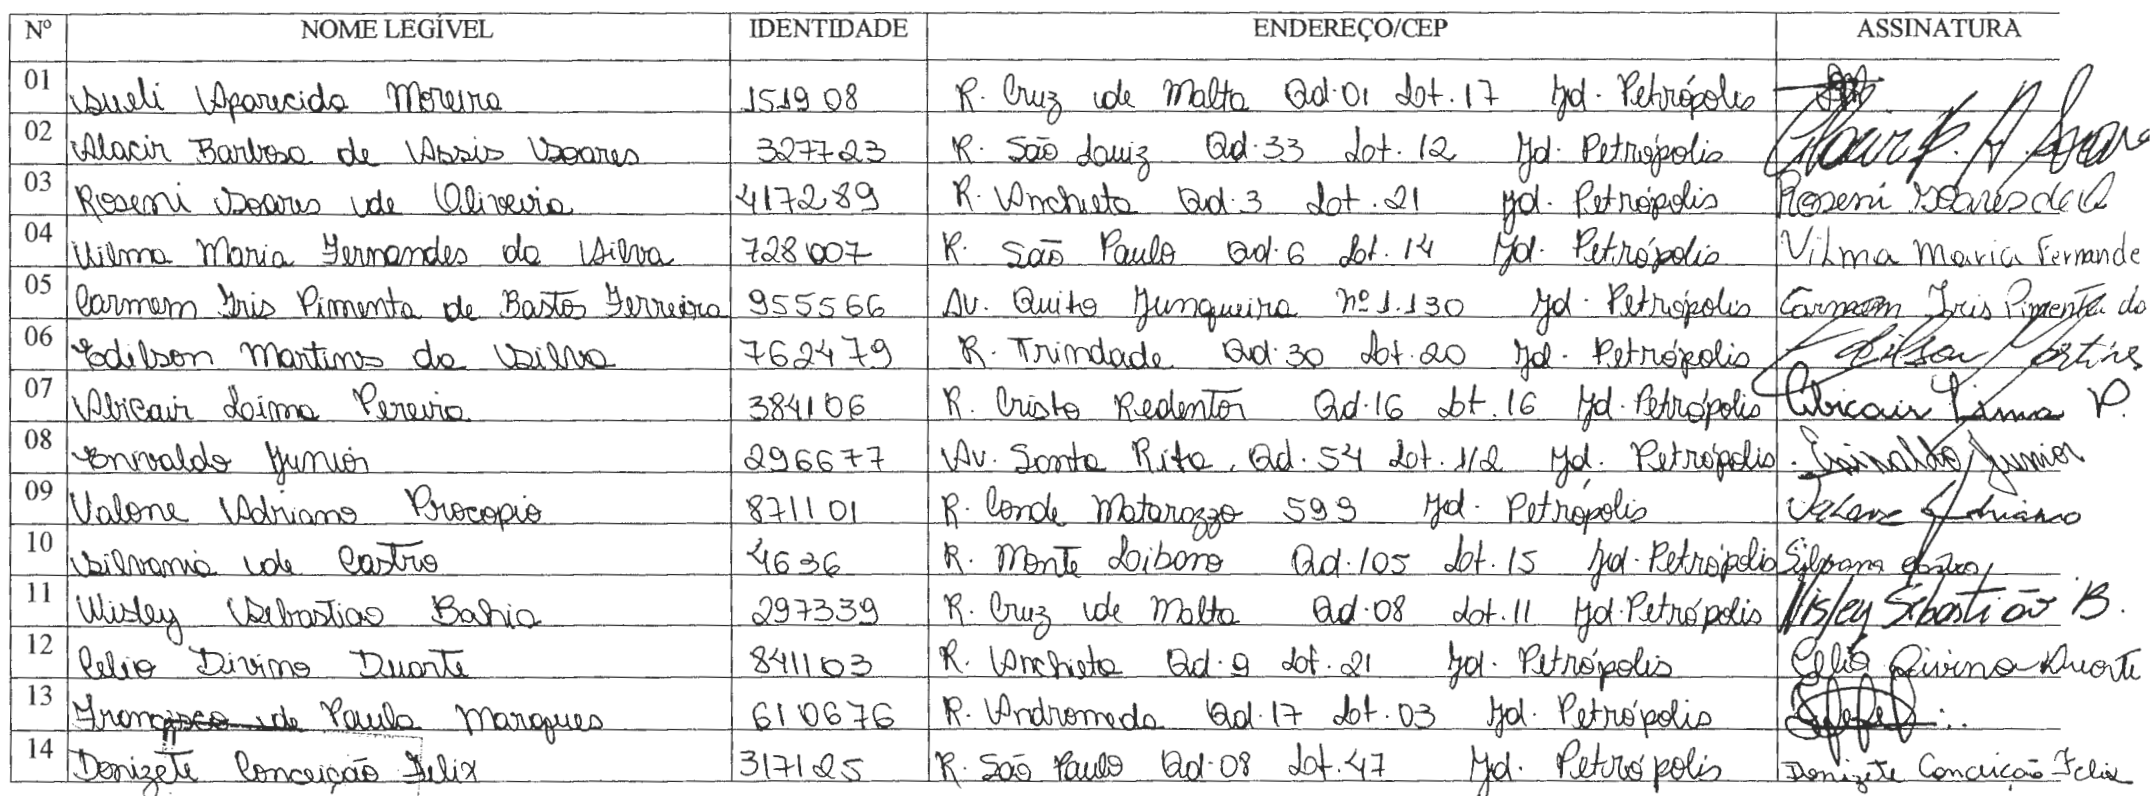 Nº NOME LEGÍVEL IDENTIDADE ENDEREÇO/CEP ASSINATURA
01 Sueli Aparecida Moreira 151908 R. Cruz de Malta Qd.01 Lot.17 Jd. Petrópolis
02 Alacir Barbosa de Assis Soares 327723 R. São Luiz Qd.33 Lot.12 Jd. Petrópolis Alacir B. A. Soares
03 Roseni Soares de Oliveira 417289 R. Anchieta Qd.3 Lot.21 Jd. Petrópolis Roseni Soares de O
04 Vilma Maria Fernandes da Silva 728007 R. São Paulo Qd.6 Lot.14 Jd. Petrópolis Vilma Maria Fernande
05 Carmem Iris Pimenta de Bastos Ferreira 955566 Av. Quito Junqueira nº 1.130 Jd. Petrópolis Carmem Iris Pimenta de
06 Edilson Martins da Silva 762479 R. Trindade Qd.30 Lot.20 Jd. Petrópolis Edilson Martins
07 Abicair Lima Pereira 384106 R. Cristo Redentor Qd.16 Lot.16 Jd. Petrópolis Abicair Lima P.
08 Enivaldo Junior 296677 Av. Santa Rita, Qd.54 Lot.1/2 Jd. Petrópolis Enivaldo Junior
09 Valone Adriano Procopio 871101 R. Conde Matarazzo 599 Jd. Petrópolis Valone Adriano
10 Silvania de Castro 4636 R. Monte Libano Qd.105 Lot.15 Jd. Petrópolis
11 Wisley Sebastiao Bahia 297339 R. Cruz de Malta Qd.08 Lot.11 Jd. Petrópolis Wisley Sebastião B.
12 Celio Divino Duarte 841103 R. Anchieta Qd.9 Lot.21 Jd. Petrópolis Célio Divino Duarte
13 Francisco de Paula Marques 610676 R. Andromeda Qd.17 Lot.03 Jd. Petrópolis
14 Donizete Conceição Felix 317125 R. São Paulo Qd.08 Lot.47 Jd. Petrópolis Donizete Conceição Felix